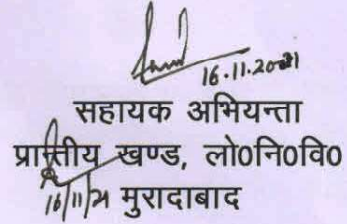 16.11.2021
सहायक अभियन्ता
प्रान्तीय खण्ड, लो0नि0वि0
16/11/21 मुरादाबाद